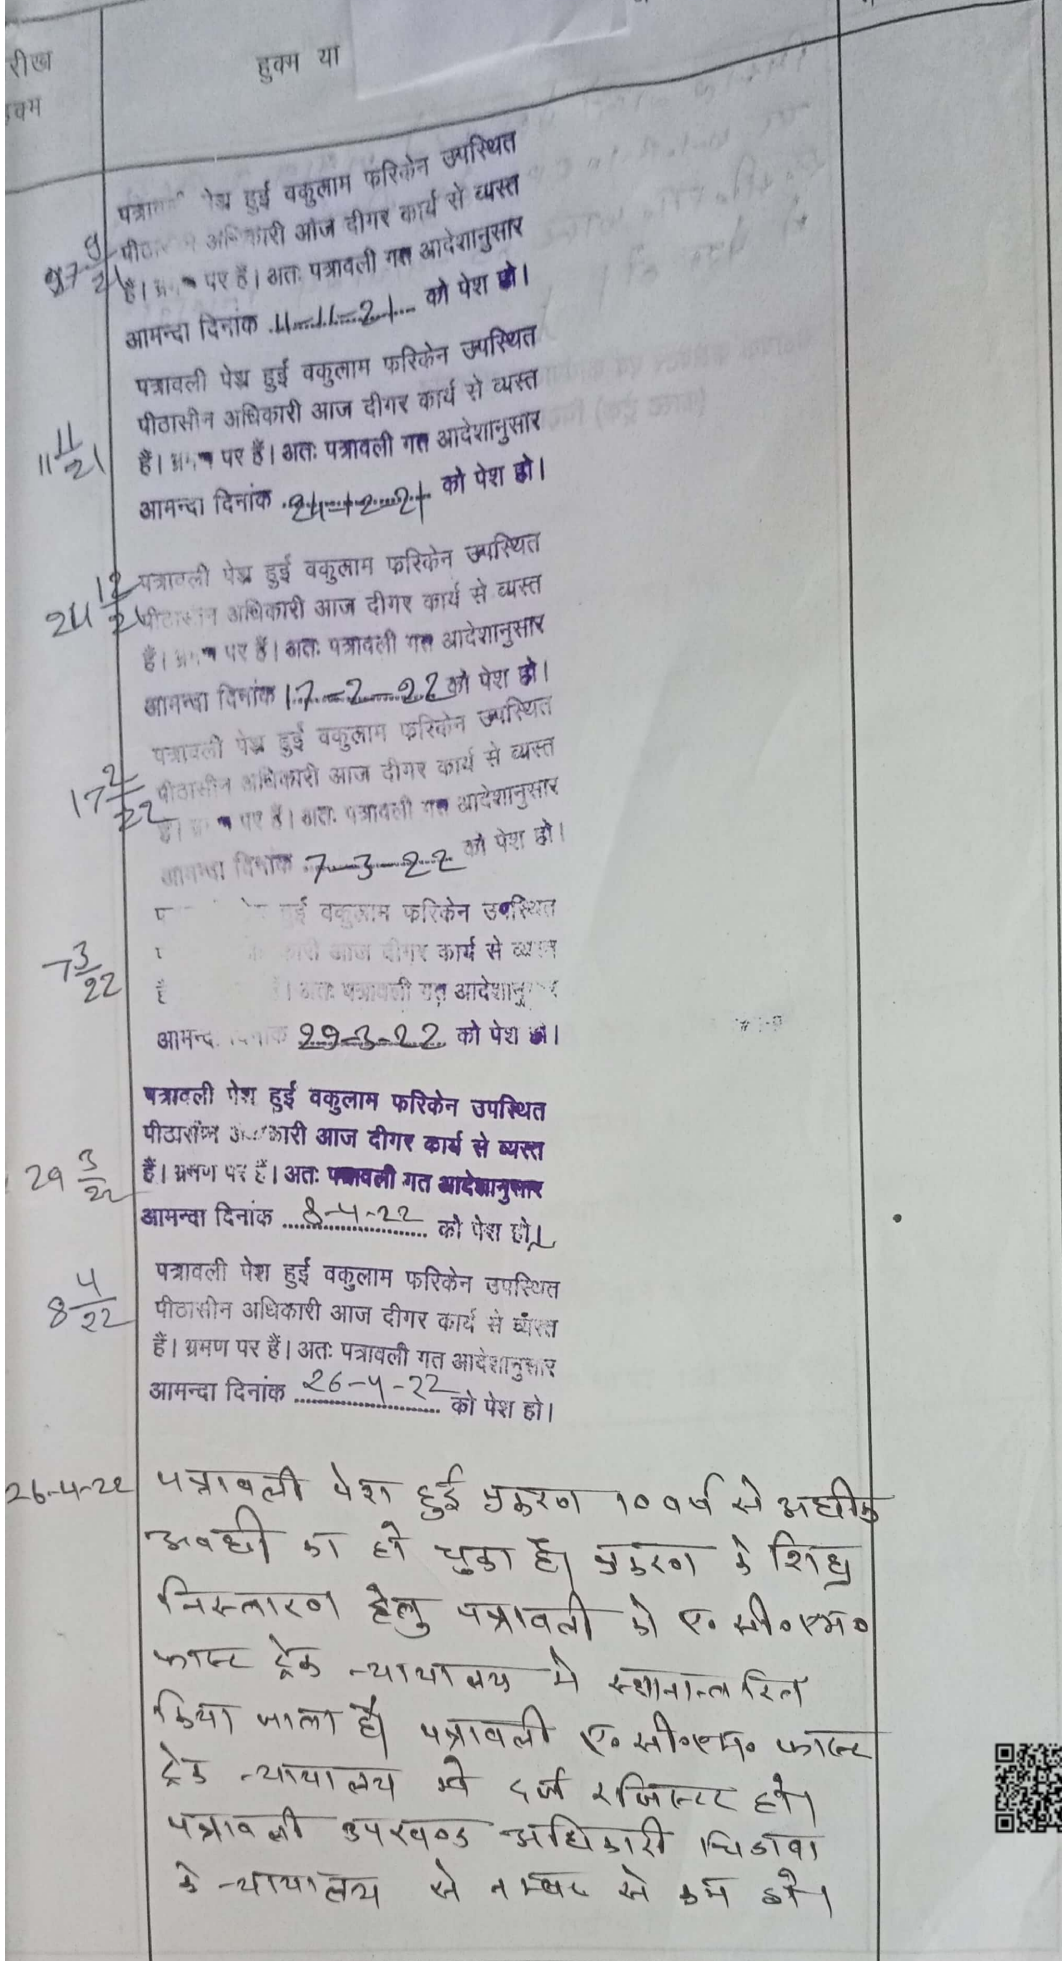 रीख
हुक्म या
क्म
पेश हुई वकुलाम फरिकेन उपस्थित
आज दीगर कार्य से व्यस्त
है। पर हैं। अतः पत्रावली गत आदेशानुसार
आमन्दा दिनांक 11-11-21 को पेश हो।
पत्रावली पेश हुई वकुलाम फरिकेन उपस्थित
पीठासीन अधिकारी आज दीगर कार्य से व्यस्त
11 11/21
हैं। पर हैं। अतः पत्रावली गत आदेशानुसार
आमन्दा दिनांक 24-12-21 को पेश हो।
24 12/21
पत्रावली पेश हुई वकुलाम फरिकेन उपस्थित
पीठासीन अधिकारी आज दीगर कार्य से व्यस्त
हैं। पर हैं। अतः पत्रावली गत आदेशानुसार
आमन्दा दिनांक 17-2-22 को पेश हो।
पत्रावली पेश हुई वकुलाम फरिकेन उपस्थित
17 2/22
पीठासीन अधिकारी आज दीगर कार्य से व्यस्त
हैं। पर हैं। अतः पत्रावली गत आदेशानुसार
आमन्दा दिनांक 7-3-22 को पेश हो।
हुई वकुलाम फरिकेन उपस्थित
7 3/22
आज दीगर कार्य से व्यस्त
है। अतः पत्रावली गत
दिनांक 29-3-22 को पेश हो।
पत्रावली पेश हुई वकुलाम फरिकेन उपस्थित
पीठासीन अधिकारी आज दीगर कार्य से व्यस्त
29 3/22
हैं। भ्रमण पर हैं। अतः पत्रावली गत आदेशानुसार
आमन्दा दिनांक 8-4-22 को पेश हो।
8 4/22
पत्रावली पेश हुई वकुलाम फरिकेन उपस्थित
पीठासीन अधिकारी आज दीगर कार्य से व्यस्त
हैं। भ्रमण पर हैं। अतः पत्रावली गत आदेशानुसार
आमन्दा दिनांक 26-4-22 को पेश हो।
26-4-22 पत्रावली पेश हुई प्रकरण 10 वर्ष से अधीक
अवधी का हो चुका है। प्रकरण के शिघ्र
निस्तारण हेतु पत्रावली को ए॰ सी॰ एम॰
फास्ट ट्रेक न्यायालय मे स्थानान्तरित
किया जाता है। पत्रावली ए॰ सी॰ एम॰ फास्ट
ट्रेक न्यायालय मे दर्ज रजिस्टर हो।
पत्रावली उपखण्ड अधिकारी चिडावा
के न्यायालय से नम्बर से कम हो।